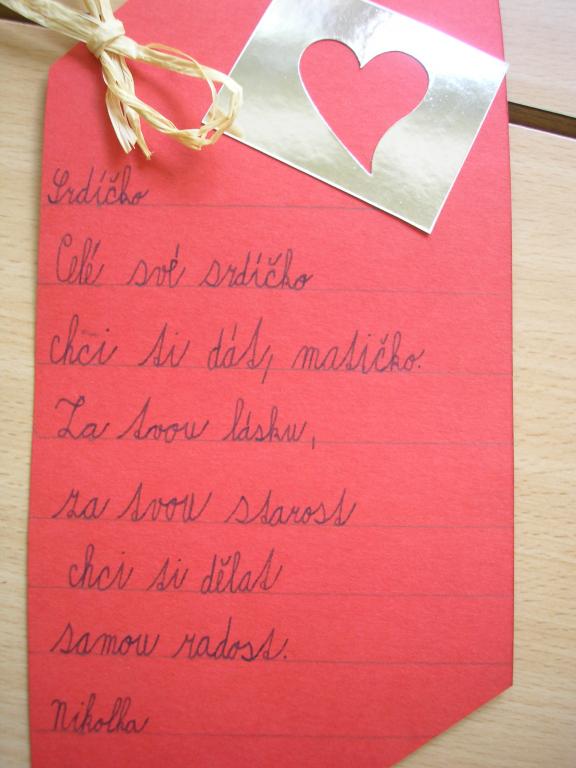 Srdíčko
Celé své srdíčko
chci ti dát, matičko.
Za tvou lásku,
za tvou starost
chci ti dělat
samou radost.
Nikolka